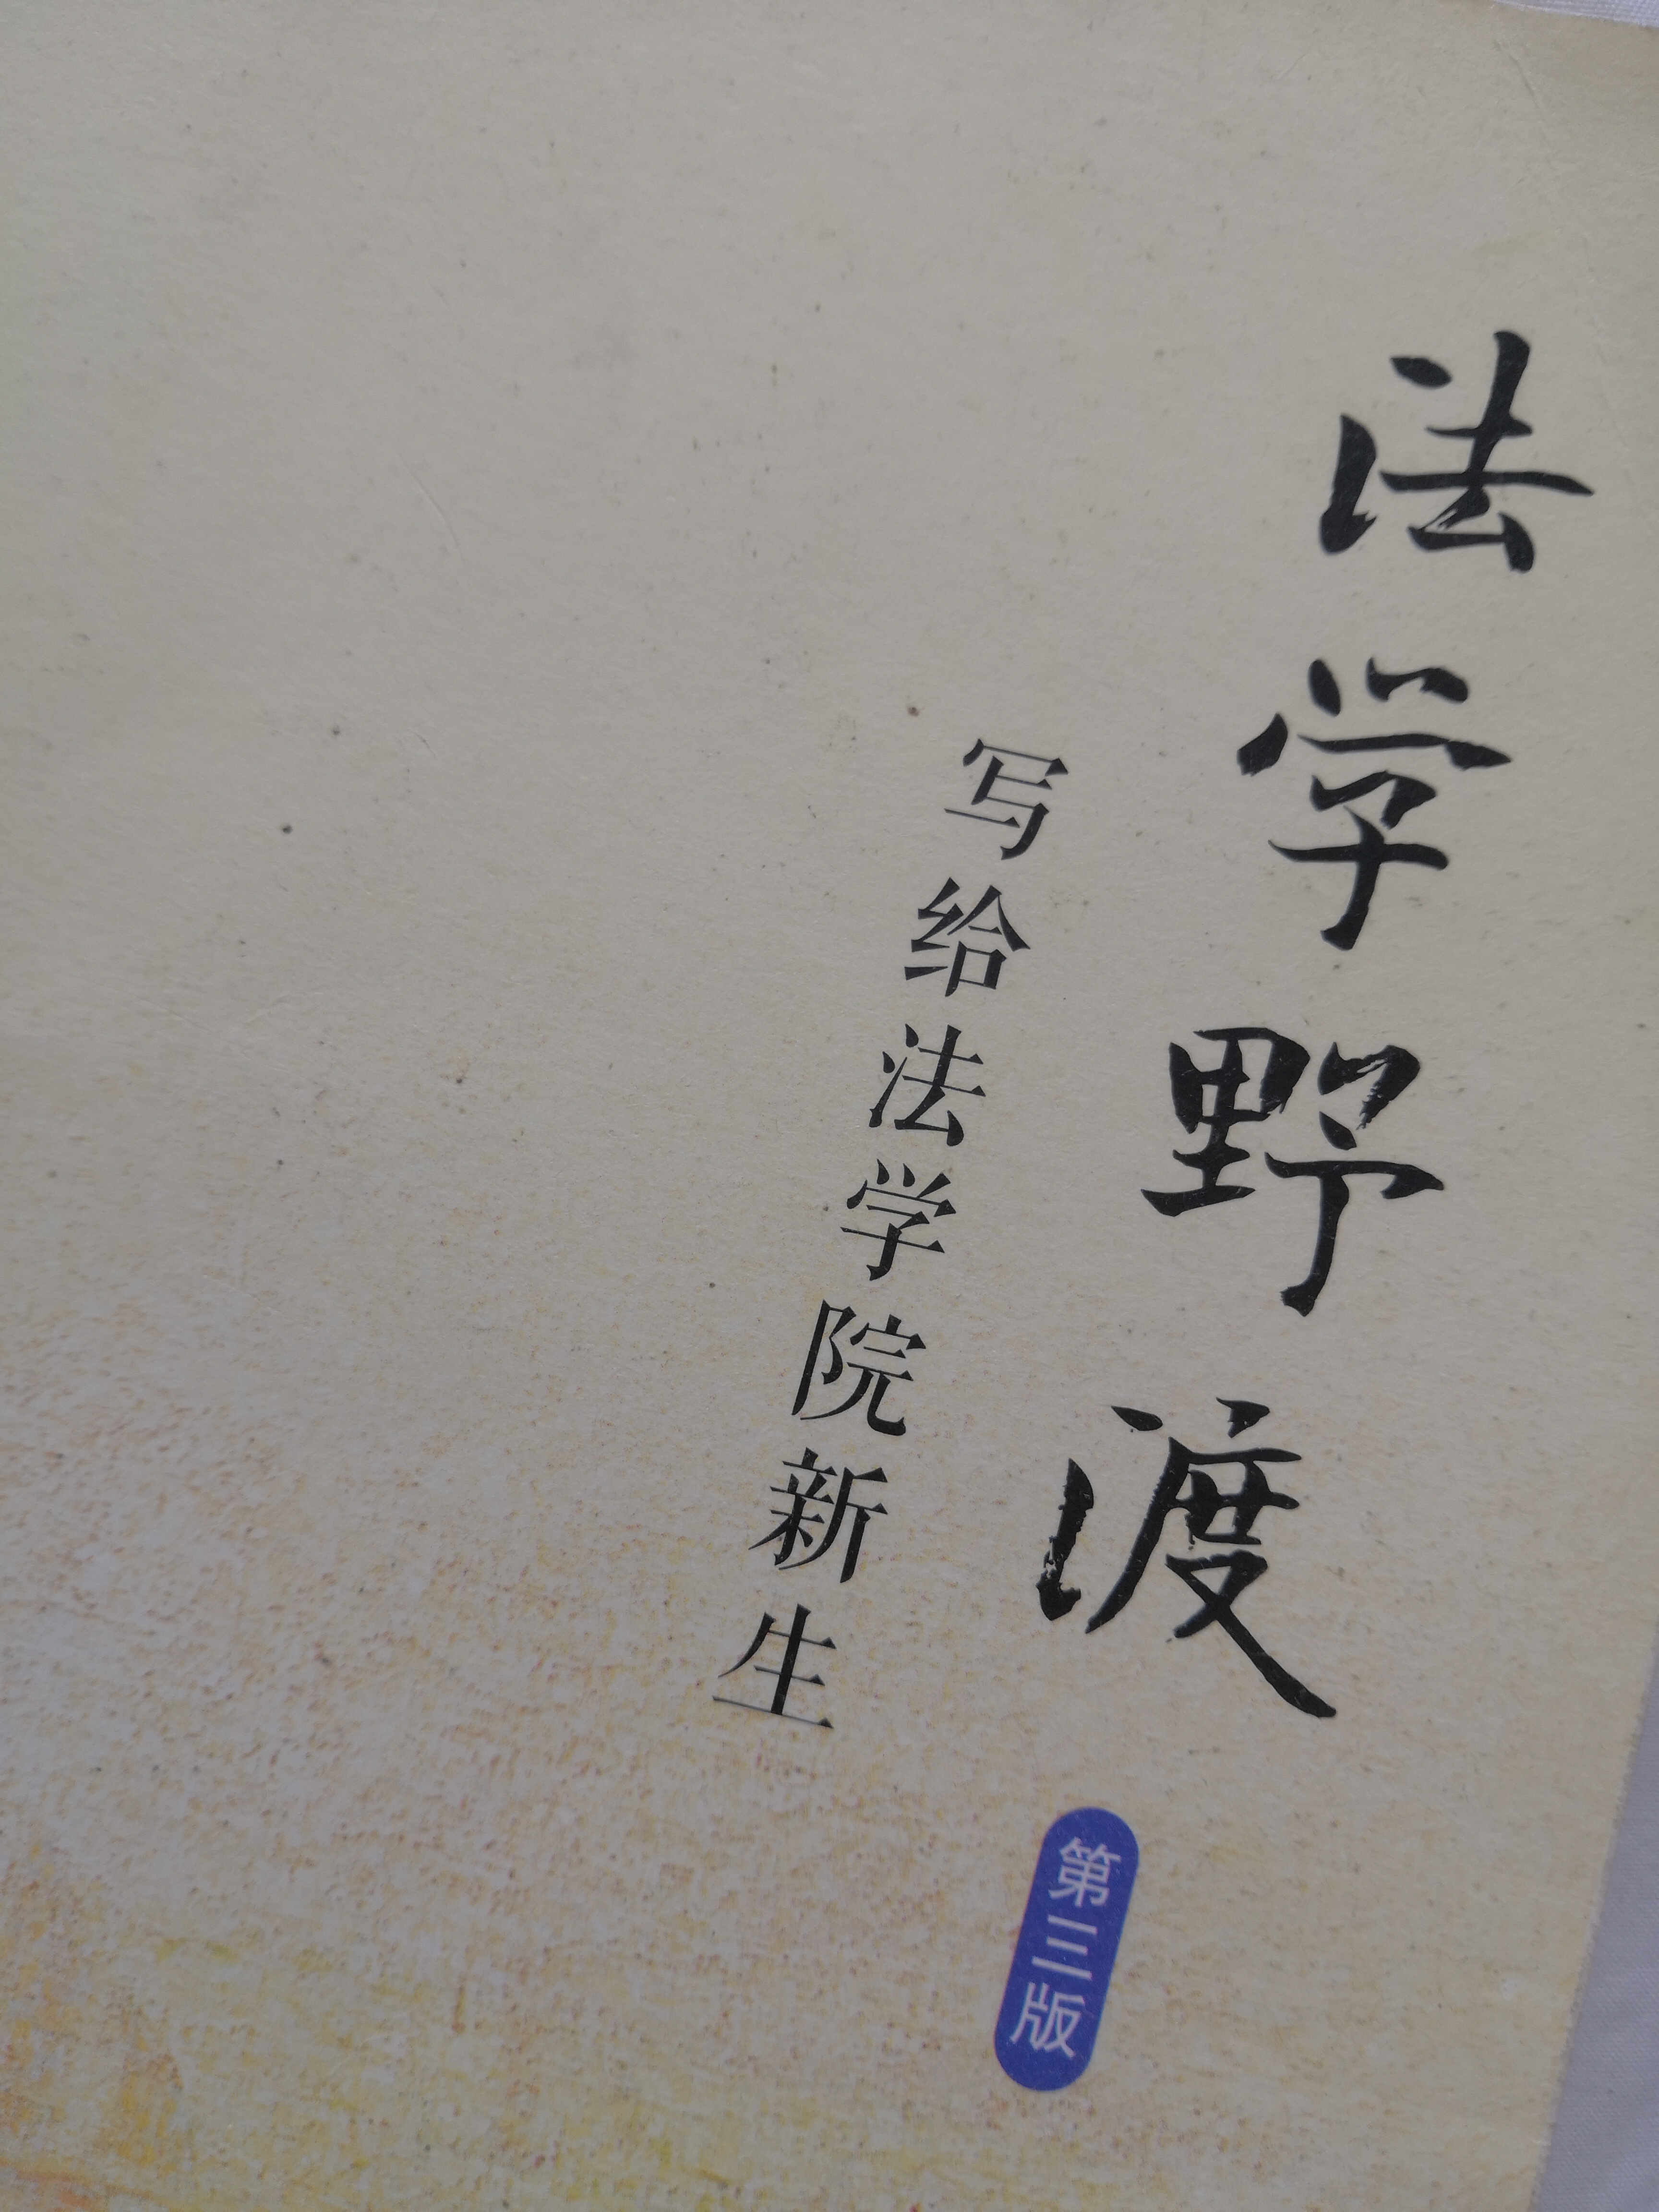 法学野渡
写给法学院新生
第三版